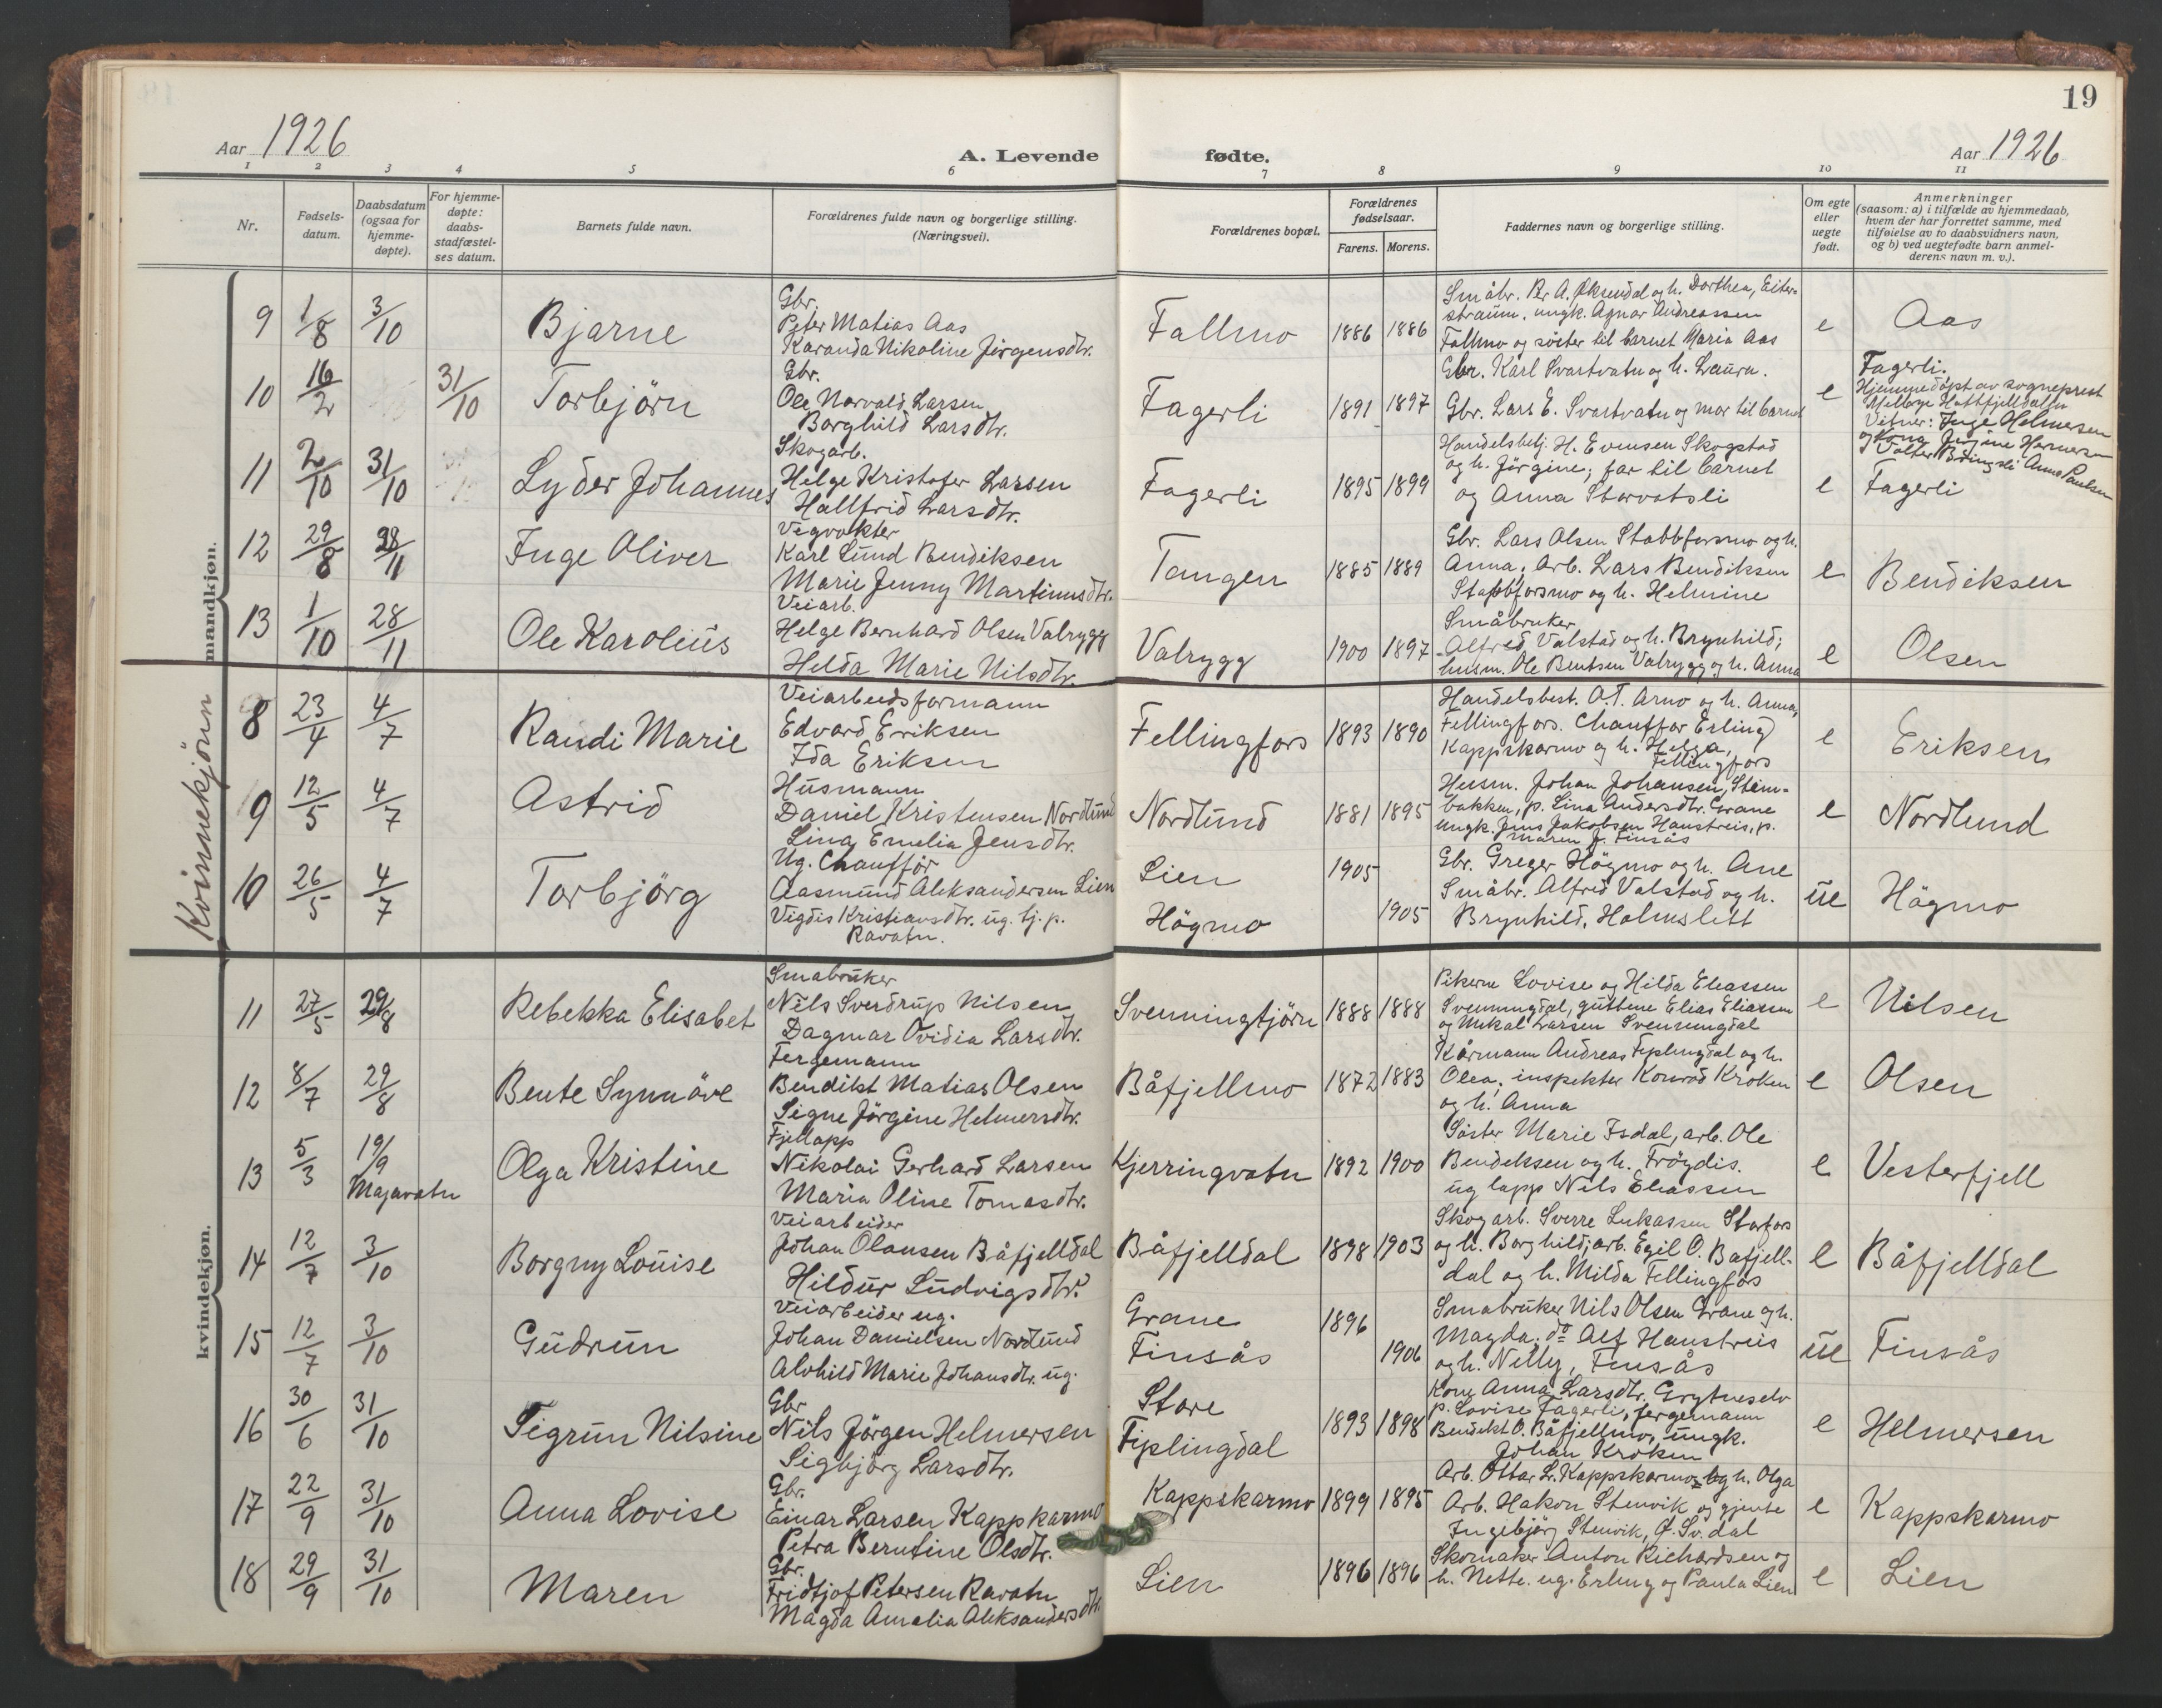 19
Aar 1926
A. Levende fødte.
Aar 1926
1 2 3 4 5 6 7 8 9 10 11
Nr.
Fødsels-
datum.
Daabsdatum
(ogsaa for
hjemme-
døpte).
For hjemme-
døpte:
daabs-
stadfæstel-
ses datum.
Barnets fulde navn.
Forældrenes fulde navn og borgerlige stilling.
(Næringsvei).
Forældrenes bopæl.
Forældrenes
fødselsaar.
Farens. Morens.
Faddernes navn og borgerlige stilling.
Om egte
eller
uegte
født.
Anmerkninger
(saasom: a) i tilfælde av hjemmedaab,
hvem der har forrettet samme, med
tilføielse av to daabsvidners navn,
og b) ved uegtefødte barn anmel-
derens navn m. v.).
mandkjøn.
9 1/8 3/10 Bjarne
Gbr.
Peter Matias Aas
Karanda Nikoline Jörgensdtr.
Fallmo 1886 1886
Småbr. Per A. Øksendal og h. Dorthea, Eiter-
straum, ungk. Agnar Andreassen
Fallmo og söster til barnet Maria Aas
e Aas
10 16/2 31/10 Torbjörn
Gbr.
Ole Norvald Larsen
Borghild Larsdtr.
Fagerli 1891 1897
Gbr. Karl Svartvatn og h. Laura.
Gbr. Lars E. Svartvatn og mor til barnet
e Fagerli.
Hjemmedöpt av sogneprest
Hattfjelldalen
Vitner: Inge Helmersen
og kona Jörgine Helmersen
Valter Bringsli Anna Paulsen
11 2/10 31/10 Lyder Johannes
Skogarb.
Helge Kristofer Larsen
Hallfrid Larsdtr.
Fagerli 1895 1899
Handelsbetj. H. Evensen Skogstad
og h. Jörgine; far til barnet
og Anna Storvatsli
e Fagerli
12 29/8 28/11 Inge Oliver
Vegvokter
Karl Lund Bendiksen
Marie Jenny Martinusdtr.
Tangen 1885 1889
Gbr. Lars Olsen Stabbforsmo og h.
Anna; Arb. Lars Bendiksen
Stabbforsmo og h. Helmine
e Bendiksen
13 1/10 28/11 Ole Karolius
Veiarb.
Helge Bernhard Olsen Valrygg
Helda Marie Nilsdtr.
Valrygg 1900 1897
Småbruker
Alfred Valstad og h. Brynhild;
husm. Ole Bentsen Valrygg og h. Anna
e Olsen
Kvinnekjönn
8 23/4 4/7 Randi Marie
Veiarbeidsformann
Edvard Eriksen
Ida Eriksen
Fellingfors 1893 1890
Handelsbest. O.T. Arno og h. Anna,
Fellingfors. Chauffør Erling
Kappskarmo og h. Helga,
Fellingfors
e Eriksen
9 12/5 4/7 Astrid
Husmann
Daniel Kristensen Nordlund
Lina Emelia Jensdtr.
Nordlund 1881 1895
Husm. Johan Johansen, Stein-
bakken, p. Lina Andersdtr. Grane
ungk. Jens Jakobsen Haustreis, p.
Maren J. Finsås
e Nordlund
10 26/5 4/7 Torbjörg
Ug. Chauffør
Aasmund Aleksandersen Lien
Vigdis Kristiansdtr. ug. tj. p.
Ravatn.
Lien 1905
Högmo 1905
Gbr. Greger Högmo og h. Ane
Småbr. Alfred Valstad og h.
Brynhild, Holmslett
ue Högmo
kvindekjøn.
11 27/5 29/8 Rebekka Elisabet
Småbruker
Nils Sverdrup Nilsen
Dagmar Ovidia Larsdtr.
Svenningtjörn 1888 1888
Pikerne Lovise og Hilda Eliassen
Svenningdal, guttene Elias Eliassen
og Mikal Larsen Svenningdal
e Nilsen
12 8/7 29/8 Bente Synnöve
Fergemann
Bendikt Matias Olsen
Signe Jörgine Helmersdtr.
Båfjellmo 1872 1883
Kårmann Andreas Fiplingdal og h.
Olea; inspektør Konrad Kroken
og h. Anna
e Olsen
13 5/3 19/9 Majavatn Olga Kristine
Fjellapp
Nikolai Gerhard Larsen
Maria Oline Tomasdtr.
Kjerringvatn 1892 1900
Söster Marie Isdal, arb. Ole
Bendiksen og h. Fröydis.
ug lapp Nils Eliassen
e Vesterfjell
14 12/7 3/10 Borgny Louise
Veiarbeider
Johan Olausen Båfjelldal
Hildur Ludvigsdtr.
Båfjelldal 1898 1903
Skogarb. Sverre Lukassen Storfors
og h. Borghild; arb. Egil O. Båfjell-
dal og h. Milda Fellingfors
e Båfjelldal
15 12/7 3/10 Gudrun
Veiarbeider ug.
Johan Danielsen Nordlund
Alvhild Marie Johansdtr. ug.
Grane 1896
Finsås 1906
Småbruker Nils Olsen Grane og h.
Magda; do Alf Haustreis
og h. Nelly, Finsås
ue Finsås
16 30/6 31/10 Sigrun Nilsine
Gbr
Nils Jörgen Helmersen
Sigbjörg Larsdtr.
Store
Fiplingdal 1893 1898
Kone Anna Larsdtr. Grytneselv
p. Lovise Fagerli, fergemann
Bendikt O. Båfjellmo, ungk.
Johan Kroken
e Helmersen
17 22/9 31/10 Anna Lovise
Gbr.
Einar Larsen Kappskarmo
Petra Berntine Olsdtr.
Kappskarmo 1899 1895
Arb. Ottar L. Kappskarmo og h. Olga
Arb. Hakon Stenvik og gjente
Ingebjörg Stenvik, G. Sv.dal
e Kappskarmo
18 29/9 31/10 Maren
Gbr.
Fridtjof Petersen Ravatn
Magda Amalia Aleksandersdtr.
Lien 1896 1896
Skomaker Anton Richardsen og
h. Nette. ug. Erling og Paula Lien
e Lien